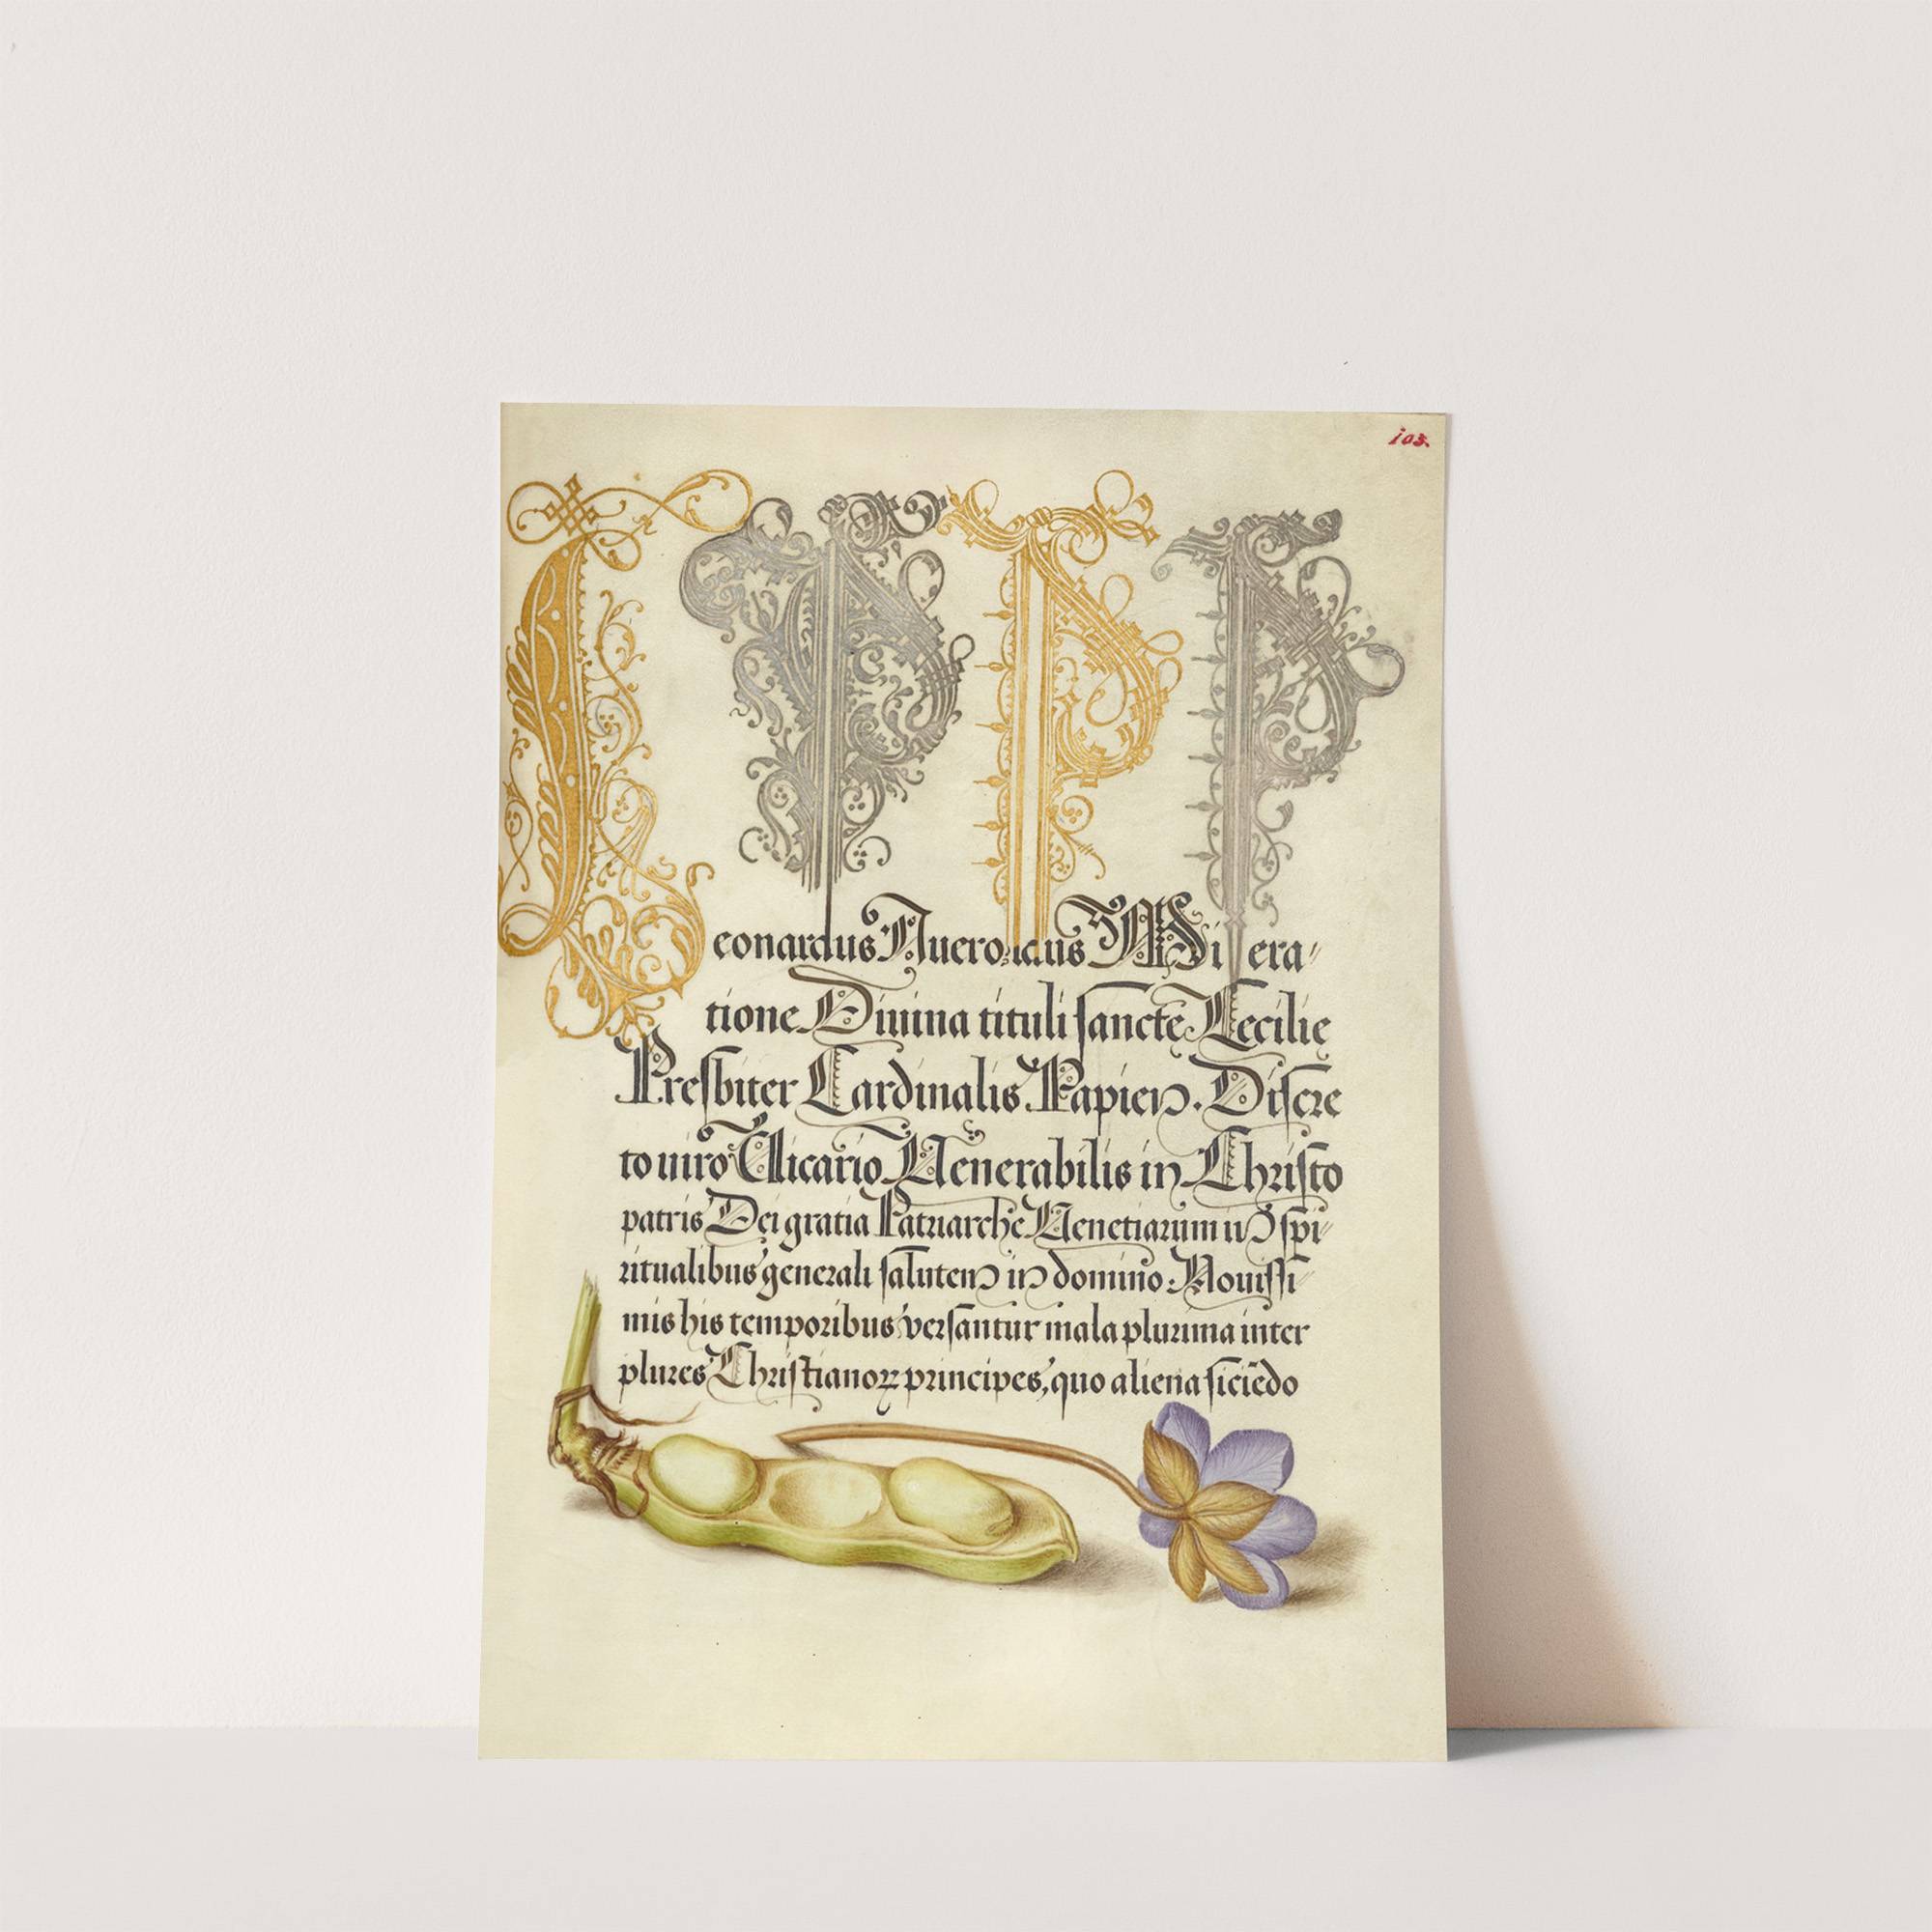 103.
L P P P
eonardus Nuero us Misera⸗
tione Diuina tituli sancte Cecilie
Presbiter Cardinalis Papien. Discre
to uiro Vicario Venerabilis in Christo
patris Dei gratia Patriarche Venetiarum in spi⸗
ritualibus generali salutem in domino. Nouissi⸗
mis his temporibus versantur mala plurima inter
plures Christianoꝝ principes, quo aliena siciēdo